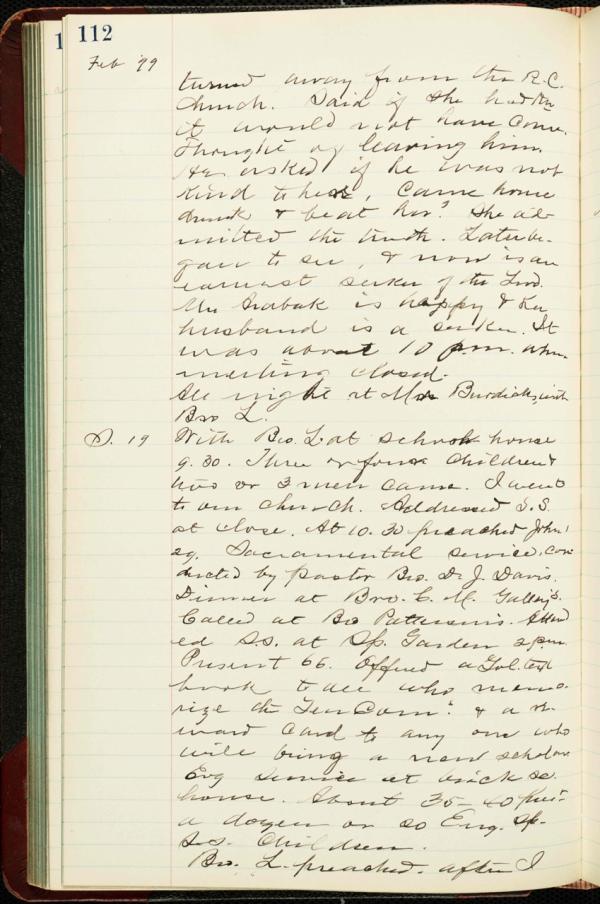 1 112
Feb '99
turned away from the R.C.
Church. Said if she had
it would not have come.
Thought of leaving him.
He asked if he was not
kind to her, came home
drunk & beat her? She ad-
mitted the truth. Later be-
gan to see, & now is an
earnest seeker of the Lord.
Mr. is happy & her
husband is a seeker. It
was about 10 p.m. when
meeting closed.
All night at Mr Burdicks, with
Bro L.
S. 19 With Bro. L at school house
9.30. Three or four children &
two or 3 men came. I went
to our church. Addressed S.S.
at close. At 10.30 preached John
Sacramental service, con-
ducted by pastor Bro. D. J. Davis.
Dinner at Bro. C. M.
Called at Bro Pattersons. Attend
ed S.S. at Sp. Garden 2 p.m.
Present 66. Offered a Gol. text
book to all who memo-
rize the Ten Com. & a re-
ward card to any one who
will bring a new scholar
Evg service at brick sc.
house. About 35-40 Pres.
a dozen or so Eng. Sp.
S.S. children.
Bro. L. preached. after I